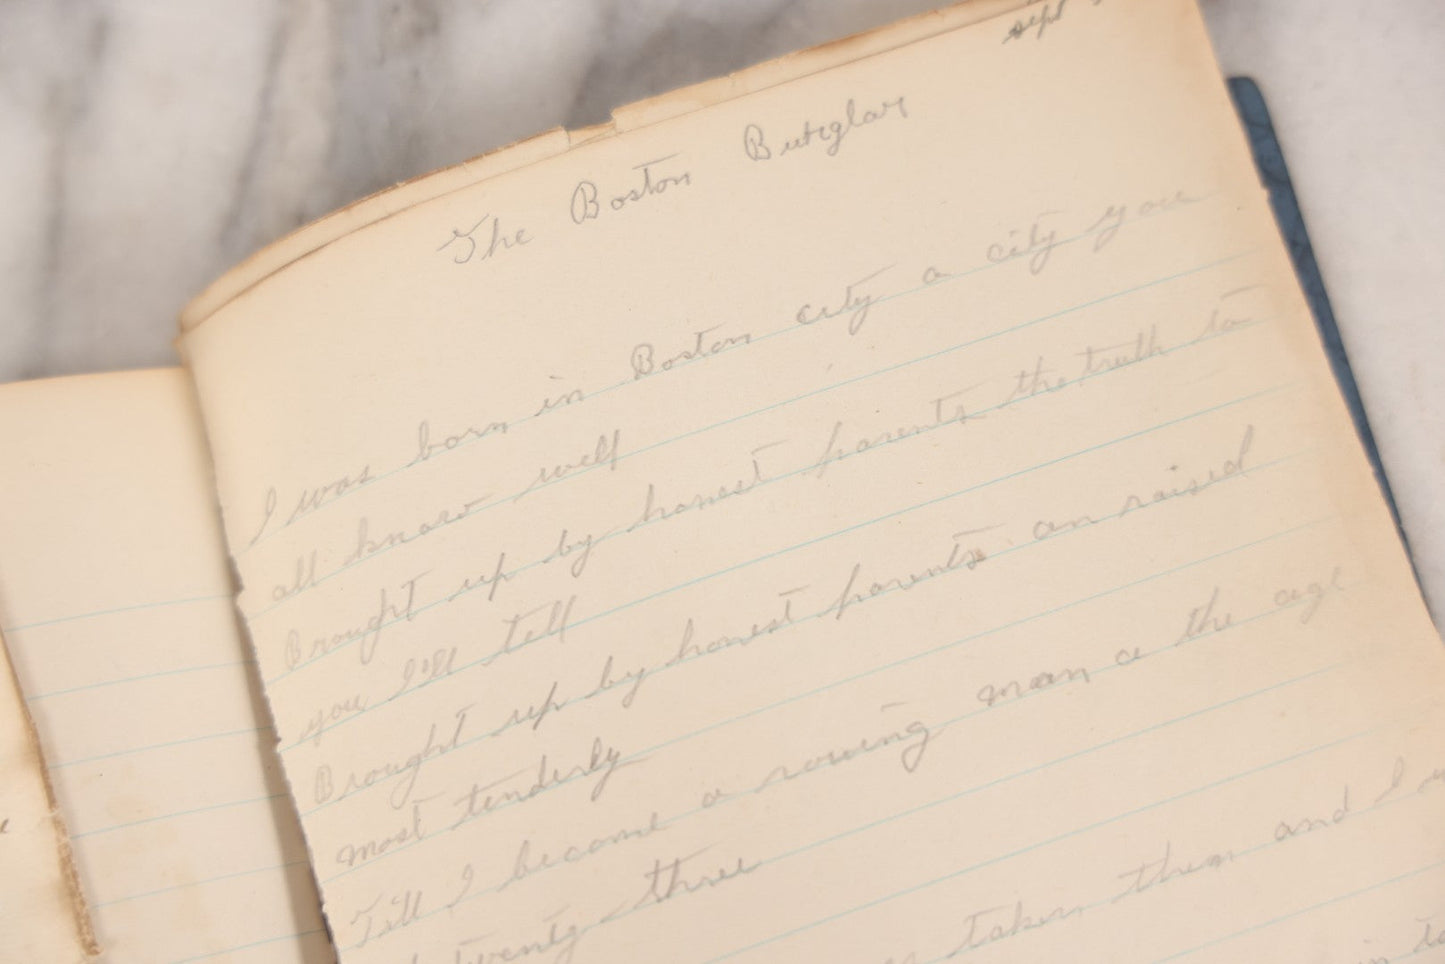 sept
The Boston Burglar
I was born in Boston city a city you
all know well
Brought up by honest parents the truth to
you I'll tell
Brought up by honest parents an raised
most tenderly
Till I become a roving man a the age
twenty three
taken them and I
in to